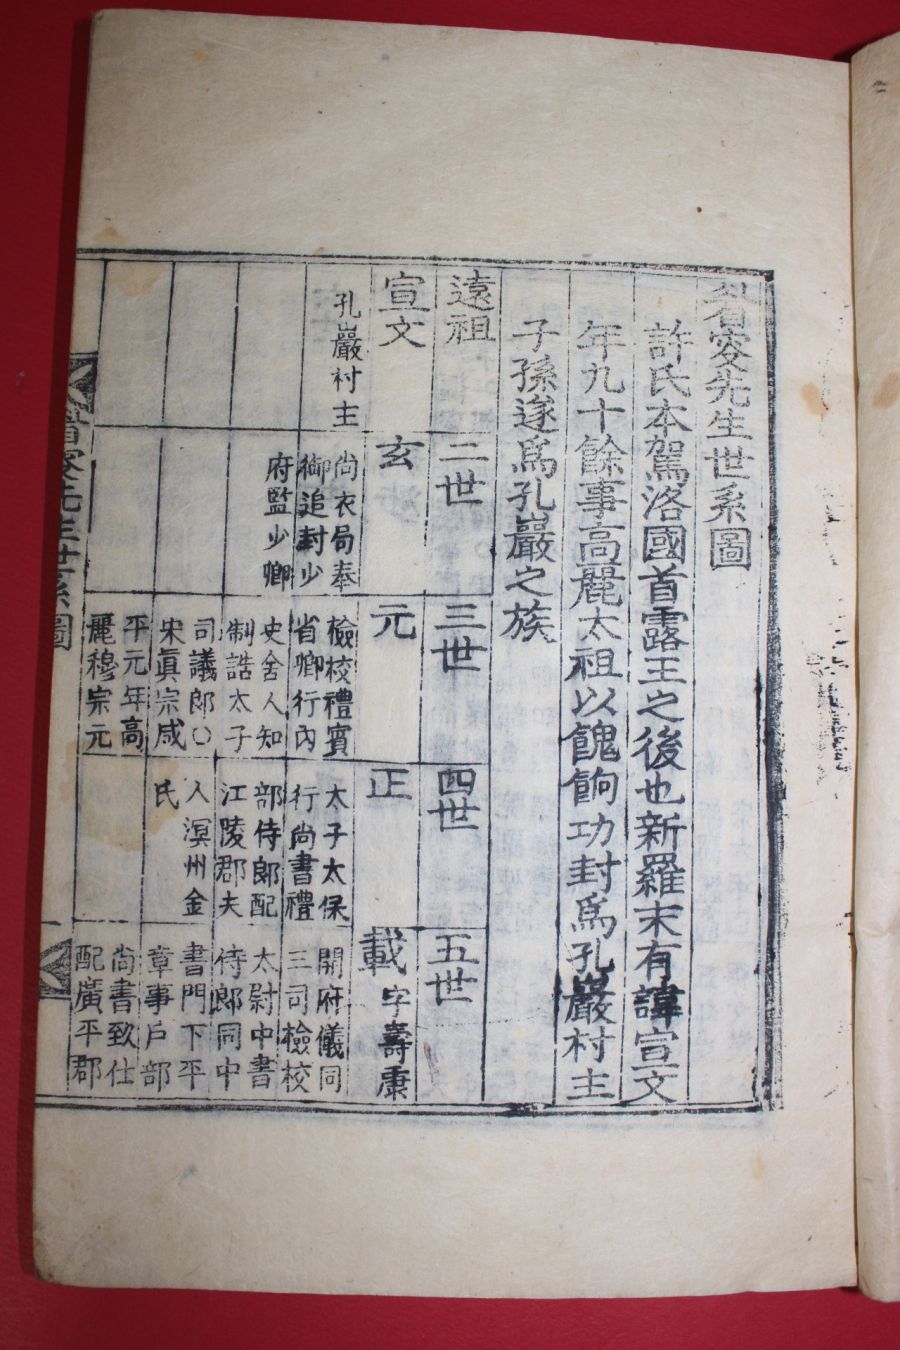 省窓先生世系圖
許氏本駕洛國首露王之後也新羅末有諱宣文
年九十餘事高麗太祖以餽餉功封爲孔巖村主
子孫遂爲孔巖之族
遠祖
宣文
孔巖村主
二世
玄
尚衣局奉
御追封少
府監少卿
三世
元
檢校禮賓
省卿行內
史舍人知
制誥太子
司議郎○
宋眞宗咸
平元年高
麗穆宗元
四世
正
太子太保
行尚書禮
部侍郎配
江陵郡夫
人溟州金
氏
五世
載 字壽康
開府儀同
三司檢校
太尉中書
侍郎同中
書門下平
章事戶部
尚書致仕
配廣平郡
先生世系圖